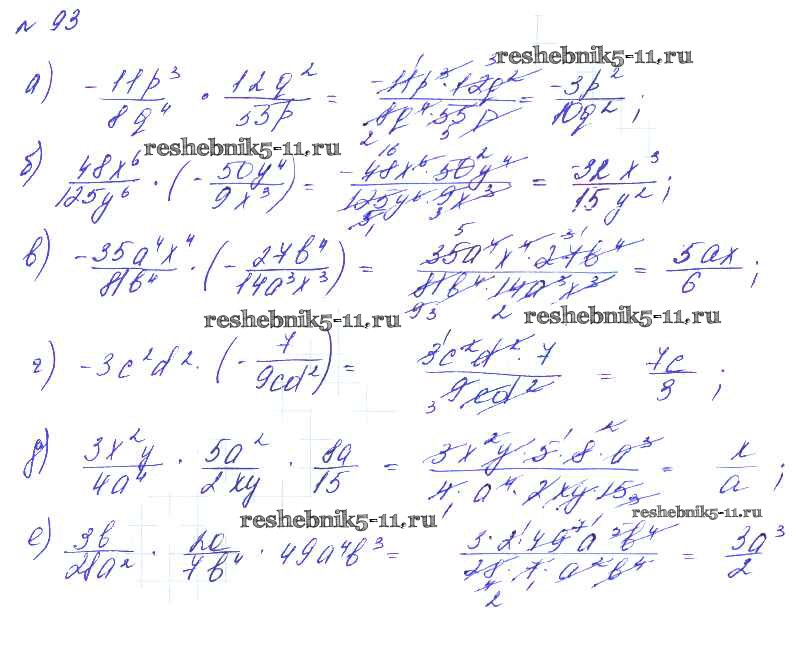 № 93
reshebnik5-11.ru
а) -11p³/8q⁴ · 12q²/55p = -11p³·12q²/8q⁴·55p = -3p²/10q² ;
reshebnik5-11.ru
б) 48x⁶/125y⁶ · (-50y⁴/9x³) = -48x⁶·50y⁴/125y⁶·9x³ = -32x³/15y² ;
в) -35a⁴x⁴/81b⁴ · (-27b⁴/14a³x³) = 35a⁴x⁴·27b⁴/81b⁴·14a³x³ = 5ax/6 ;
reshebnik5-11.ru reshebnik5-11.ru
г) -3c²d² · (-7/9cd²) = 3c²d²·7/9cd² = 7c/3 ;
д) 3x²y/4a⁴ · 5a²/2xy · 8a/15 = 3x²y·5·8·a³/4·a⁴·2xy·15 = x/a ;
reshebnik5-11.ru reshebnik5-11.ru
е) 3b/28a² · 2a/7b⁴ · 49a⁴b³ = 3·2·49a⁵b⁴/28·7·a²b⁴ = 3a³/2